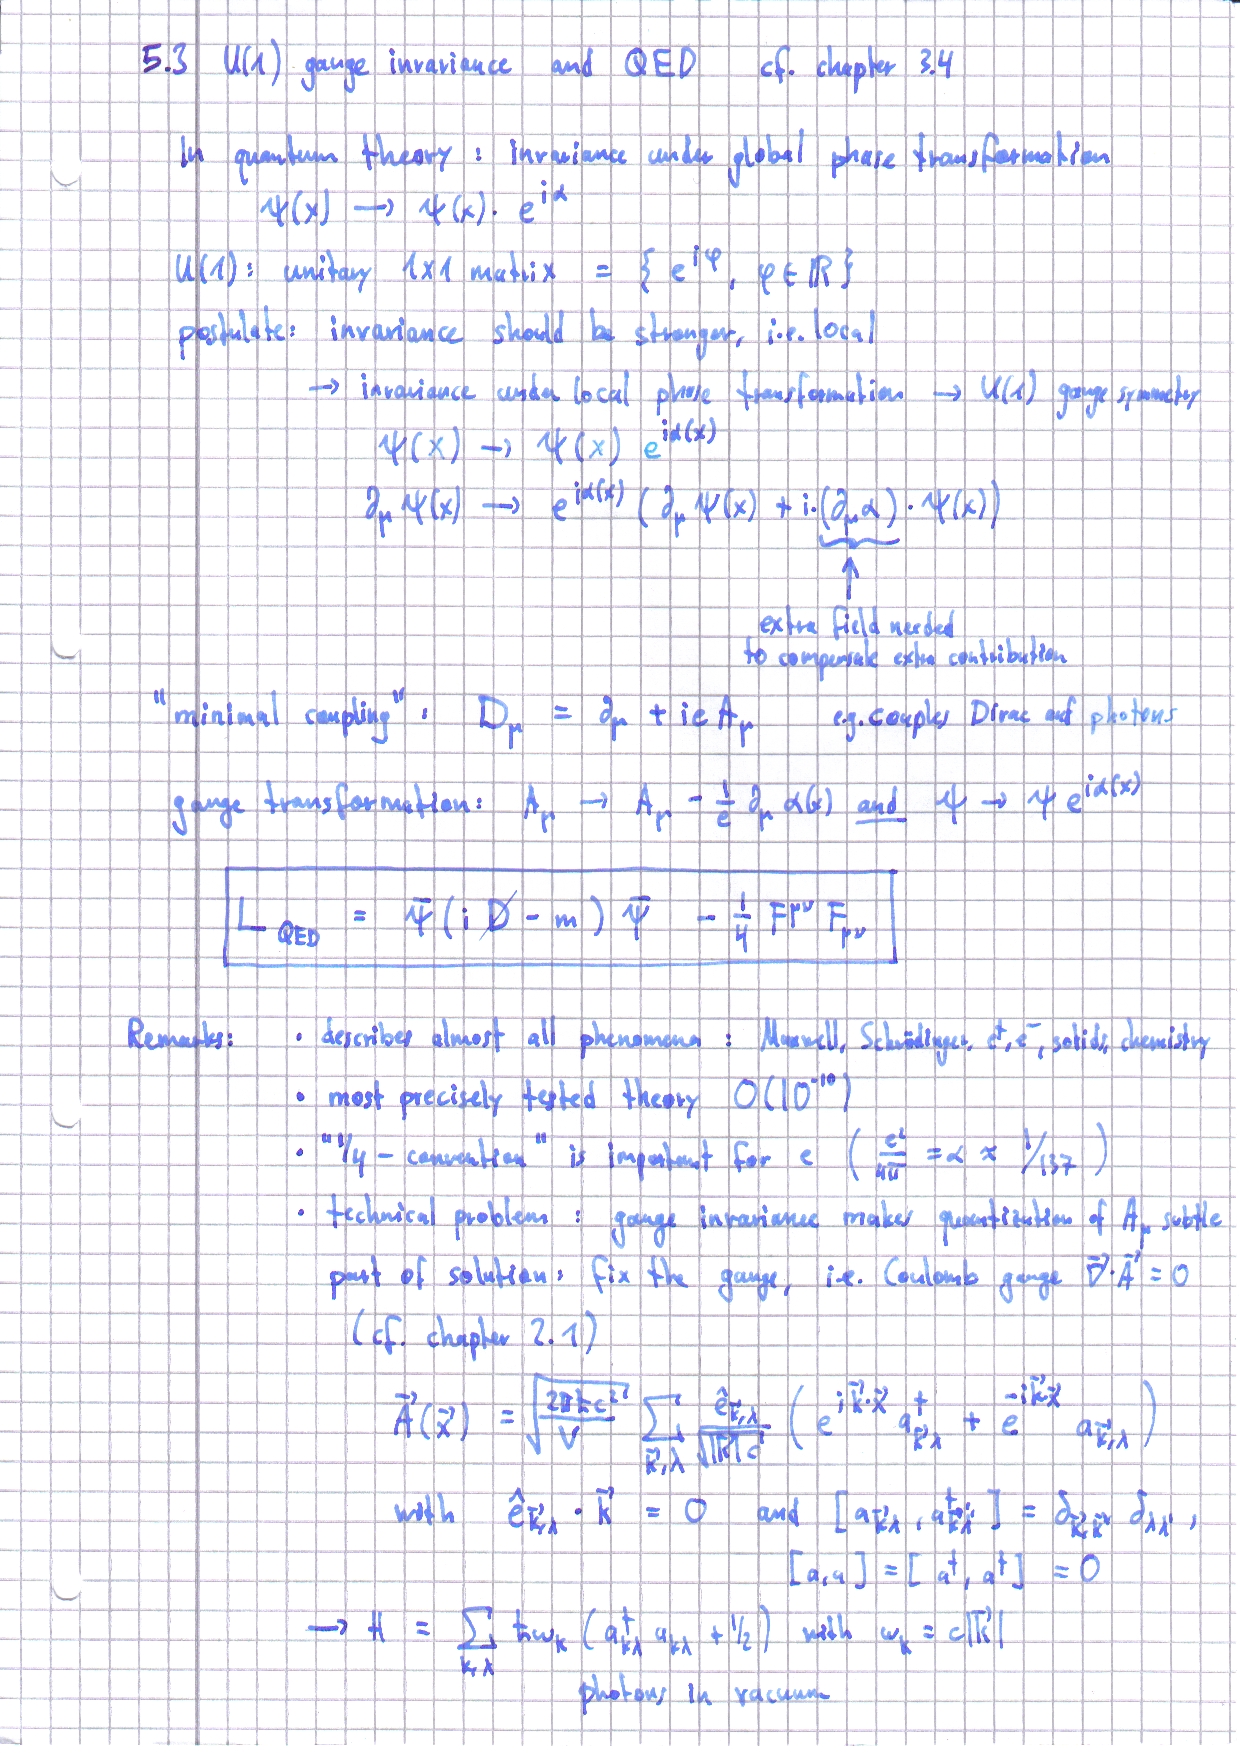 5.3 U(1) gauge invariance and QED cf. chapter 3.4
In quantum theory : invariance under global phase transformation
ψ(x) → ψ(x) · e^{iα}
U(1) : unitary 1x1 matrix = { e^{iφ}, φ ∈ ℝ }
postulate: invariance should be stronger, i.e. local
→ invariance under local phase transformation → U(1) gauge symmetry
ψ(x) → ψ(x) e^{iα(x)}
∂_μ ψ(x) → e^{iα(x)} ( ∂_μ ψ(x) + i·(∂_μ α) · ψ(x))
↑
extra field needed
to compensate extra contribution
"minimal coupling" : D_μ = ∂_μ + ieA_μ e.g. couples Dirac and photons
gauge transformation: A_μ → A_μ - 1/e ∂_μ α(x) and ψ → ψ e^{iα(x)}
L_QED = ψ̄ ( i D̸ - m ) ψ̄ - 1/4 F^{μν} F_{μν}
Remarks: • describes almost all phenomena : Maxwell, Schrödinger, e⁺, e⁻, solids, chemistry
• most precisely tested theory O(10^{-10})
• "1/4 - convention" is important for e ( e²/4π = α ≈ 1/137 )
• technical problem : gauge invariance makes quantization of A_μ subtle
part of solution: fix the gauge, i.e. Coulomb gauge ∇⃗·A⃗ = 0
(cf. chapter 2.1)
A⃗(x⃗) = √(2πħc²/V) Σ_{k⃗,λ} ê_{k⃗,λ}/√(|k⃗|c) ( e^{ik⃗·x⃗} a†_{k⃗λ} + e^{-ik⃗x⃗} a_{k⃗,λ} )
with ê_{k⃗,λ} · k⃗ = 0 and [ a_{k⃗λ} , a†_{k⃗'λ'} ] = δ_{k⃗,k⃗'} δ_{λλ'} ,
[a,a] = [a†, a†] = 0
→ H = Σ_{k,λ} ħω_k ( a†_{kλ} a_{kλ} + 1/2 ) with ω_k = c|k⃗|
photons in vacuum